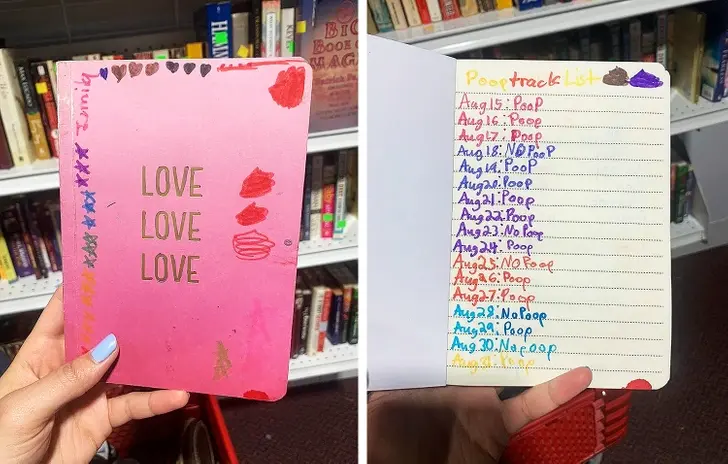 LOVE
LOVE
LOVE
BIG
BOOK
OF
MAGIC
Poop track List
Aug 15: PooP
Aug 16: Poop
Aug 17: Poop
Aug 18: NO PooP
Aug 19: PooP
Aug 20: Poop
Aug 21: Poop
Aug 22: Poop
Aug 23: No Poop
Aug 24: Poop
Aug 25: NO Poop
Aug 26: Poop
Aug 27: Poop
Aug 28: No Poop
Aug 29: Poop
Aug 30: No poop
Aug 31: Poop